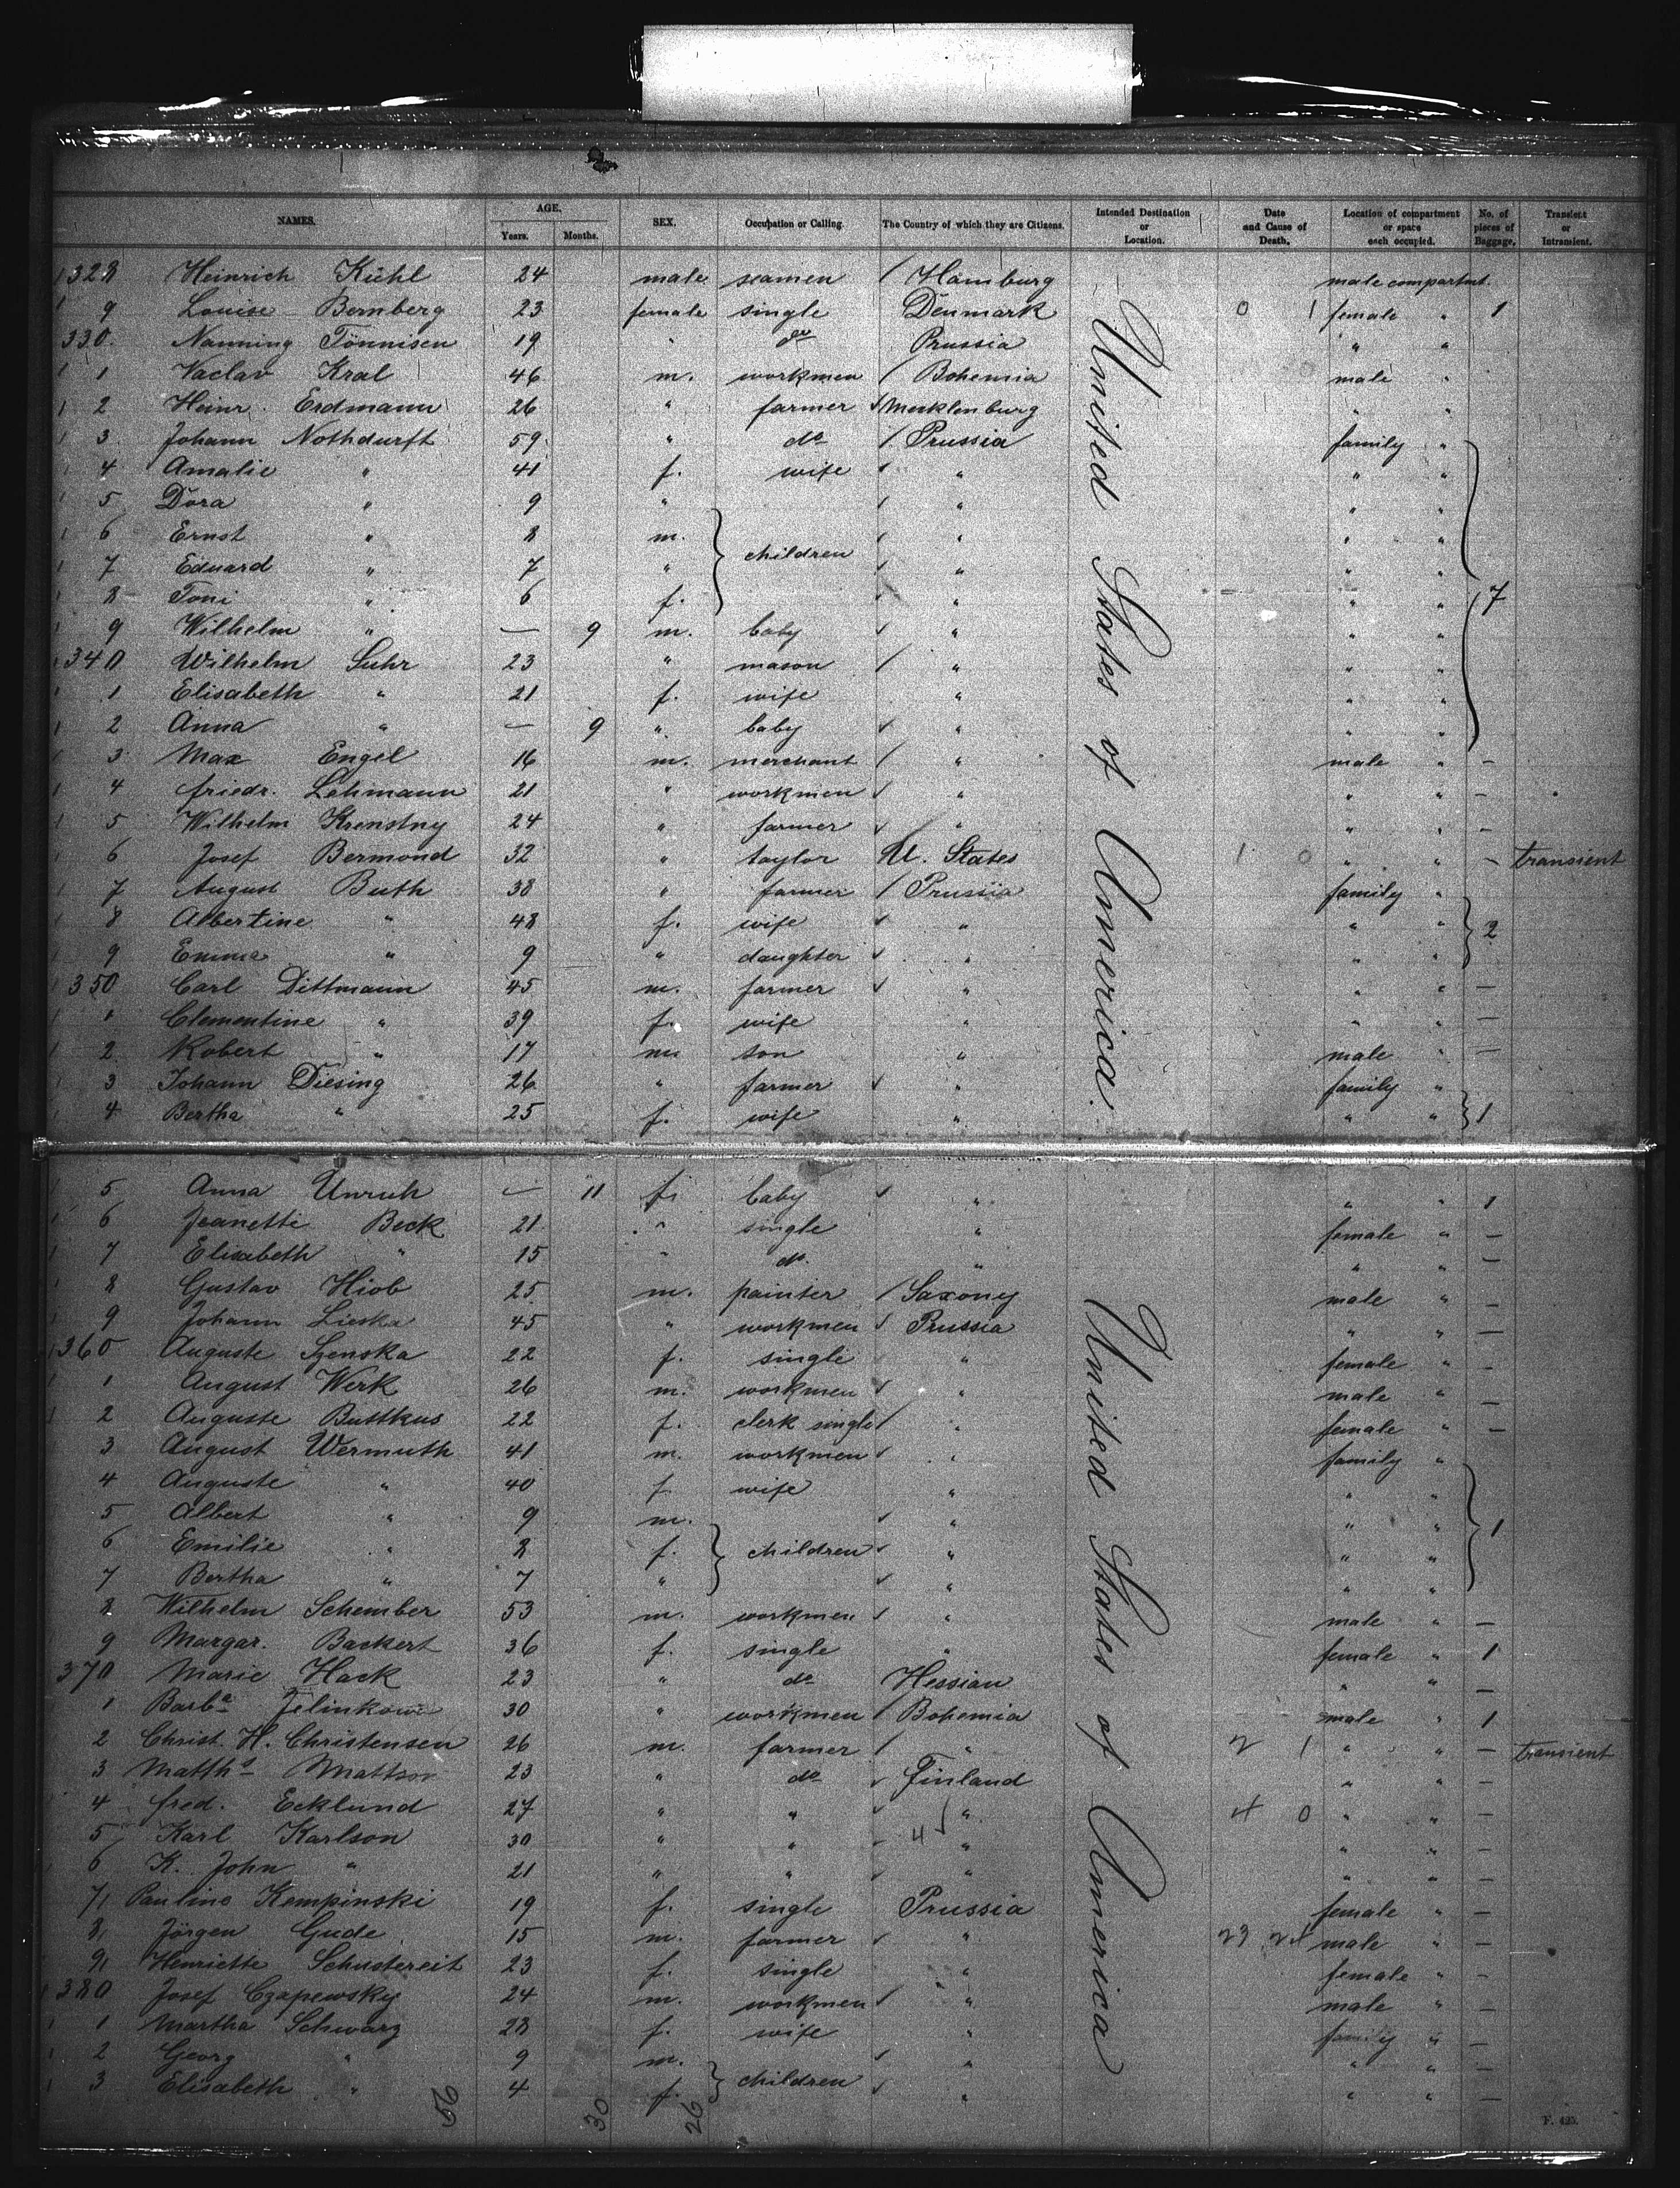 NAMES. AGE. Years. Months. SEX. Occupation or Calling. The Country of which they are Citizens. Intended Destination or Location. Date and Cause of Death. Location of compartment or space each occupied. No. of pieces of Baggage. Transient or Intransient.
1328 Heinrich Kühl 24 male seamen / Hamburg male compartmt.
9 Louise Bernberg 23 female single Denmark 0 1 female " 1
330. Nanning Tönnisen 19 " do Prussia " "
1 Vaclav Kral 46 m. workmen / Bohemia male "
2 Heinr. Erdmann 26 " farmer ✓ Mecklenburg " "
3 Johann Nothdurft 59 " do / Prussia family "
4 Amalie " 41 f. wife ✓ " " "
5 Dora " 9 " ✓ " " "
6 Ernst " 8 m. children ✓ " " "
7 Eduard " 7 " ✓ " " "
8 Toni " 6 f. ✓ " " " 7
9 Wilhelm " — 9 m. baby ✓ " " "
1340 Wilhelm Suhr 23 " mason / " " "
1 Elisabeth " 21 f. wife " " "
2 Anna " — 9 " baby ✓ " " "
3 Max Engel 16 m. merchant / " male " –
4 friedr. Lehmann 21 " workmen ✓ " " " –
5 Wilhelm Krenstny 24 " farmer ✓ " " " –
6 Josef Bermond 32 " taylor U. States 1 0 " " – transient
7 August Buth 38 " farmer / Prussia family "
8 Albertine " 48 f. wife ✓ " " " 2
9 Emma " 9 " daughter ✓ " " "
350 Carl Dittmann 45 m. farmer ✓ " " " —
1 Clementine " 39 f. wife " " " —
2 Robert " 17 m son " male " —
3 Johann Diesing 26 " farmer ✓ " family "
4 Bertha " 25 f. wife " " " 1
United States of America.
5 Anna Unruh — 11 f. baby ✓ " " " 1
6 Jeanette Beck 21 " single " female " –
7 Elisabeth " 15 " do. " " " –
8 Gustav Hiob 25 m. painter / Saxony male " –
9 Johann Lieska 45 " workmen ✓ Prussia " " —
1360 Auguste Szenska 22 f. single " female " –
1 August Werk 26 m. workmen ✓ " male " –
2 Auguste Buttkus 22 f. clerk single / " female " –
3 August Wermuth 41 m. workmen ✓ " family "
4 Auguste " 40 f. wife " " "
5 Albert " 9 m. ✓ " " " 1
6 Emilie " 8 f. children ✓ " " "
7 Bertha " 7 " ✓ " " "
8 Wilhelm Schember 53 m. workmen ✓ " male " –
9 Margar. Backert 36 f. single " female " 1
370 Marie Hack 23 " do Hessian " " –
1 Barba Jelinkowa 30 " workmen / Bohemia male " 1
2 Christ. H. Christensen 26 m. farmer / " 2 1 " " – transient
3 Matths Mattson 23 " do ✓ Finland " " –
4 fred. Ecklund 27 " " ✓ " 4 0 " " –
5 Karl Karlson 30 " " 4 " " " –
6 K. John " 21 " " ✓ " " " –
7 Pauline Kempinski 19 f. single Prussia female " –
8 Jörgen Gude 15 m. farmer ✓ " 23 24 male " –
9 Henriette Schustereit 23 f. single " female " –
1380 Josef Czapewsky 24 m. workmen ✓ " male " –
1 Martha Schwarz 28 f. wife " family " –
2 Georg " 9 m. ✓ " " " –
3 Elisabeth " 4 f. children ✓ " " " –
United States of America
56 30 26
F. 425.